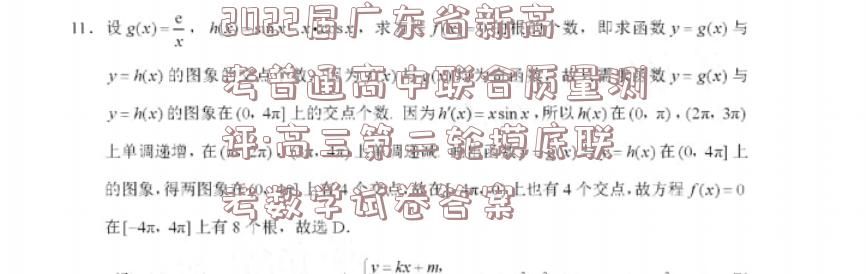 11. 设 g(x)=e/x, h(x)=sin x - x cos x, 求方程 f(x)=0 的根的个数, 即求函数 y=g(x) 与
y=h(x) 的图象的交点个数. 因为 g(x) 与 为奇函数, 故只需求函数 y=g(x) 与
y=h(x) 的图象在 (0, 4π] 上的交点个数. 因为 h′(x)=x sin x, 所以 h(x) 在 (0, π), (2π, 3π)
上单调递增, 在 (π, 2π), 4π] 上单调递减. h(x) 在 (0, 4π] 上
的图象, 得两图象在 (0, 4π] 上有 4 个交点, 故在 [-4π, 0) 上也有 4 个交点, 故方程 f(x)=0
在[-4π, 4π] 上有 8 个根, 故选 D.
y=kx+m,
2022届广东省新高
考普通高中联合质量测
评·高三第一轮摸底联
考数学试卷答案